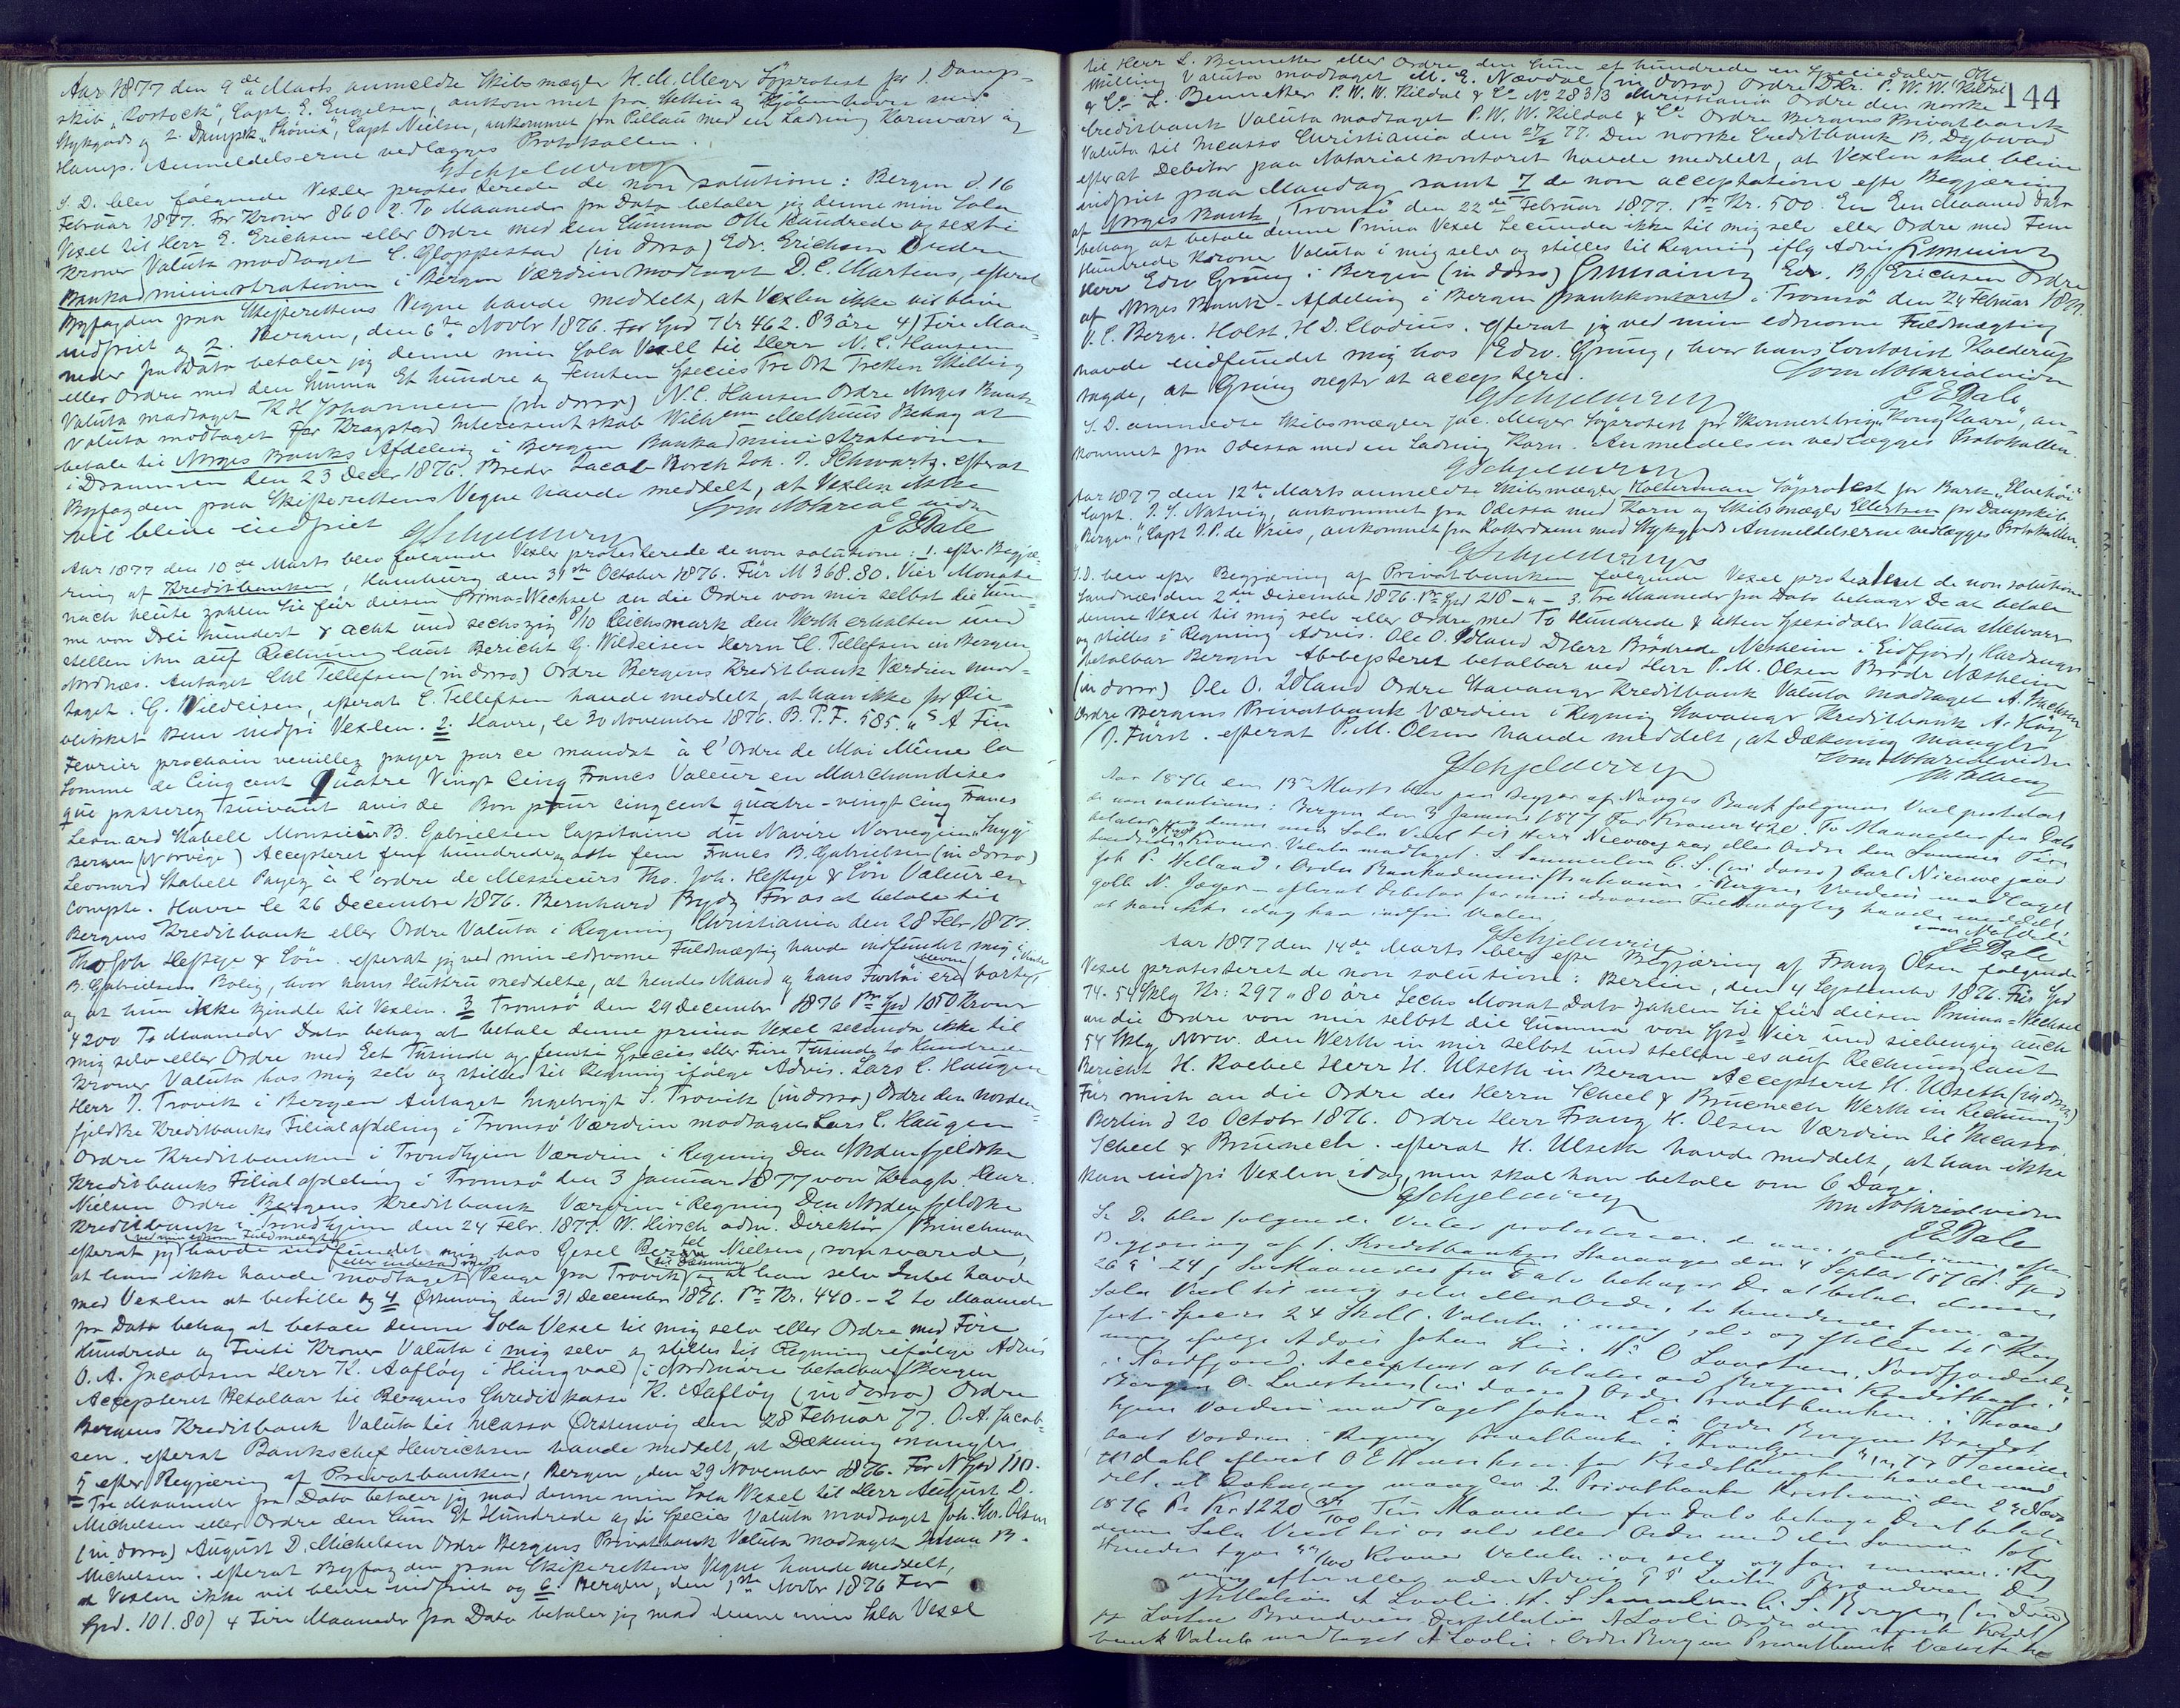 Aar 1877 den 9de Marts anmeldte Skibsmægler H. M. Meyer Söprotest for 1. Damp-
skib "Rostock", Capt. E. Engelsen, ankommet fra Stettin og Kjöbenhavn med
Stykgods og 2. Dampsk. "Phönix", Capt Nielsen, ankommet fra Pillau med en Ladning Kornvarer og
Hamp. Anmeldelserne vedlægges Protokollen.
GSchjelderup
S. D. blev følgende Vexler protesterede de non solutione: Bergen d. 16
Februar 1877. For Kroner 860 2. To Maaneder fra Dato betaler jeg denne min Sola
Vexel til Herr E. Erichsen eller Ordre med den Summa Otte Hundrede og sexti
Kroner Valuta modtaget C. Gloppestad (in dorso) Edv. Erichsen Orden
Bankadministrationen i Bergen Værdien modtaget D. C. Martens, efterat
Byfogden paa Skifterettens Vegne havde meddelt, at Vexlen ikke vil blive
indfriet og 2. Bergen, den 6te Novbr 1876. For Spd 7 Kr 462. 83 öre 4) Fire Maa-
neder fra Dato betaler jeg denne min Sola Vexel til Herr N. C. Hansen
eller Ordre med den Summa Et hundre og Femten Species Tre Ort Tretten Skilling
Valuta modtaget R H Johannesen (in dorso) N. C. Hansen Ordre Norges Bank
Valuta modtaget For Kragstad Interesentskab Wilhelm Melhuus Behag at
betale til Norges Banks Afdeling i Bergen Bankadministrationen
i Drammen den 23 Decbr 1876. Breder Jacob Borch Joh. J. Schwartz. efterat
Byfogden paa Skifterettens Vegne havde meddelt, at Vexlen ikke
vil blive indfriet Som Notarialvidne
GSchjelderup J E Dale
Aar 1877 den 10de Marts blev følgende Vexler protesterede de non solutione: 1. efter Begjæ-
ring af Kreditbanken, Hamburg den 31ste October 1876. Für M 368.80. Vier Monate
nach heute zahlen Sie für diesen Prima-Wechsel an die Ordre von mir selbst die Sum-
me von Drei hundert & acht und sechszig 8/10 Reichsmark den Werth erhalten und
stellen ihn auf Rechnung laut Bericht G. Wildeisen Herrn Cl. Tellefsen in Bergen
Nordnæs. Antaget Chl Tellefsen (in dorso) Ordre Bergens Kreditbank Værdien mod-
taget. G. Wildeisen, efterat C. Tellefsen havde meddelt, at han ikke for Øie-
blikket kan indfri Vexlen. 2. Havre, le 30 Novembre 1876. B. P. F. 585. "s A Fin
Fevrier prochain veuillez payer par ce mandat à l'Ordre de Moi Même la
Somme de Cinq cent Quatre Vingt Cinq Francs Valeur en Marchandises
que passerez suivant avis de Bon pour cinq cent quatre-vingt cinq Francs
Leonard Stabell Monsieur B. Gabrielsen Capitaine du Navire Norvegien "Trygg"
Bergen (Norvege) Accepteret fem hundrede og otte fem Francs B. Gabrielsen (in dorso)
Leonard Stabell Payez à l'ordre de Messieurs Tho. Joh. Heftye & Sön Valeur en
compte. Havre le 26 Decembre 1876. Bernhard Bydz For os at betale til
Bergens Kreditbank eller Ordre Valuta i Regning Christiania den 28 Febr 1877.
Tho Joh Heftye & Sön. efterat jeg ved min edsvorne Fuldmægtig havde indfundet mig i
B. Gabrielsens Bolig, hvor hans Hustru meddelte, at hendes Mand og hans Fartøi ere bortrejst
og at hun ikke kjendte til Vexlen. 3 Tromsö den 29 December 1876 Pr Spd 1050 Kroner
4200 To Maaneder Dato behag at betale denne prima Vexel secunda ikke til
mig selv eller Ordre med Eet Tusinde og femti Species eller Fire Tusinde to Hundrede
Kroner Valuta hos mig selv og stilles til Regning ifølge Advis. Lars C. Haugen
Herr J. Trovik i Bergen Antaget Ingebrigt S. Trovik (in dorso) Ordre den Norden-
fjeldske Kreditbanks Filialafdeling i Tromsö Værdien modtaget Lars C. Haugen
Ordre Kreditbanken i Trondhjem Værdien i Regning Den Nordenfjeldske
Kreditbanks Filialafdeling i Tromsö den 3 Januar 1877 von Krogh. Chr.
Nielsen Ordre Bergens Kreditbank Værdien i Regning Den Nordenfjeldske
Kreditbank i Trondhjem den 24 Febr. 1877. W. Hirsch adm. Direktör / Brinchman
ved min edsvorne Fuldmægtig
efterat jeg havde indfundet mig hos Gjesl Nielsen, som svarede,
at han ikke havde modtaget Penge fra Trovik og at han selv Intet havde
med Vexlen at bestille og 4 Ørstenvig den 31 December 1876. Pr Kr. 440. – 2 to Maaneder
fra Dato behag at betale denne Sola Vexel til mig selv eller Ordre med Fire
Hundrede og Firti Kroner Valuta i mig selv og stilles til Regning ifølge Advis
O. A. Jacobsen Herr K. Aafløy i Hungvald i Nordmöre betalbar i Bergen
Accepteret Betalbar til Bergens Creditkasse K. Aafløy (in dorso) Ordre
Bergens Kreditbank Valuta til Incasso Ørstenvig den 28 Februar 77. O. A. Jacob-
sen. efterat Bankchef Henrichsen havde meddelt, at Dækning mangler
5 efter Begjæring af Privatbanken, Bergen, den 29 November 1876. For N Spd 110.
Tre Maaneder fra Dato betaler jeg mod denne min Sola Vexel til Herr August D.
Michelsen eller Ordre den Sum Et Hundrede og ti Species Valuta modtaget Joh. Chr. Olsen
(in dorso) August D. Michelsen Ordre Bergens Privatbank Valuta modtaget Johan B.
Michelsen. efterat Byfogden paa Skifterettens Vegne havde meddelt,
at Vexlen ikke vil blive indfriet og 6. Bergen, den 1ste Novbr 1876 For
Spd. 101.80) 4 Fire Maaneder fra Dato betaler jeg mod denne min Sola Vexel
144
til Herr L. Benneker eller Ordre den Sum et hundrede en Speciedaler Otte
Skilling Valuta modtaget M. E. Nævdal (in dorso) Ordre DHr. P. W. W. Kildal
& Co L. Benneker P. W. W. Kildal & Co No 28313 Christiania Ordre den norske
Creditbank Valuta modtaget P. W. W. Kildal & Co Ordre Bergens Privatbank
Valuta til Incasso Christiania den 27/2 77. Den norske Creditbank B. Dybwad
efterat Debitor paa Notarialkontoret havde meddelt, at Vexlen skal blive
indfriet paa Mandag samt 7 de non acceptatione efter Begjæring
af Norges Bank, Tromsö den 22de Februar 1877. Pr Kr. 500. En Een Maaned Dato
behag at betale denne Prima Vexel Secunda ikke til mig selv eller Ordre med Fem
Hundrede Kroner Valuta i mig selv og stilles til Regning iflg Advis
Herr Edv Grung i Bergen (in dorso) Edv. B. Erichsen Ordre
af Norges Bank-Afdeling i Bergen Bankkontoret i Tromsö den 24 Februar 1877.
V. C. Berge. Holst. H D. Clodius. efterat jeg ved min edsvorne Fuldmægtig
havde indfundet mig hos Edv. Grung, hvor hans Contorist Kalderup
sagde, at Grung negter at acceptere. Som Notarialvidne
GSchjelderup J E Dale
S. D. anmeldte Skibsmægler Jac. Meyer Söprotest for Skonnertbrig "Kong Kaare", an-
kommet fra Odessa med en Ladning Korn. Anmeldelsen vedlægges Protokollen.
GSchjelderup
Aar 1877 den 12te Marts anmeldte Skibsmægler Holterman Söprotest for Bark "Elvehöi"
Capt. J. S. Natvig, ankommet fra Odessa med Korn og Skibsmægler Ellertsen for Dampskib
"Bergen", Capt J. P. de Vries, ankommet fra Rotterdam med Stykgods Anmeldelserne vedlægges Protokollen.
GSchjelderup
S. D. blev efter Begjæring af Privatbanken følgende Vexel protesteret de non solutione
Sandnæs den 2den Dezember 1876. Pr Spd 218 – " – 3. Tre Maaneder fra Dato behager De at betale
denne Vexel til mig selv eller Ordre med To Hundrede & atten Spesidaler Valuta Melvarer
og stilles i Regning Advis. Ole O. Idland DHerr Brødrede Nesheim i Eidfjord, Hardanger
betalbar Bergen Abbepteret betalbar ved Herr P. M. Olsen Brödr Næsheim
(in dorso) Ole O. Idland Ordre Stavanger Kreditbank Valuta modtaget A. Bucksen
Ordre Bergens Privatbank Værdien i Regning Stavanger Kreditbank A. Höy
J. Fürst. efterat P. M. Olsen havde meddelt, at Dækning mangler
GSchjelderup Som Notarialvidne
Aar 1876 den 13de Marts blev paa Begjær af Norges Bank følgende Vexel protesteret
de non solutione: Bergen den 3 Januar 1877 For Kroner 420. To Maaneder fra Dato
betaler jeg denne min Sola Vexel til Herr Nieuwejaar eller Ordre den Summa Fire
hundrede Kroner. Valuta modtaget. S. Sammelin C. S. (in dorso) Carl Nieuwejaar
Joh P. Helland. Ordre Bankadministrationen i Bergen Værdien modtaget
golle N. Jæger – efterat Debitor for min edsvorne Fuldmægtig havde meddelt,
at han ikke idag kan indfri Vexlen. som Notvidne
GSchjelderup J E Dale
Aar 1877 den 14de Marts blev efter Begjæring af Franz Olsen følgende
Vexel protesteret de non solutione: Berlin, den 4 September 1876. Für Spd
74. 54 Sklg Kr: 297 " 80 öre Sechs Monat Dato zahlen Sie für diesen Prima-Wechsel
an die Ordre von mir selbst die Summa von Spd Vier und siebenzig auch
54 Sklg Norw. den Werth in mir selbst und stellen es auf Rechnung laut
Bericht H. Roebel Herr H. Ulseth in Bergen Accepteret H. Ulseth (in dorso)
Für mich an die Ordre des Herrn Scheel & Brünech Werth in Rechnung
Berlin d 20 Octobr 1876. Ordre Herr Franz H. Olsen Værdien til Incasso.
Scheel & Brünech. efterat H. Ulseth havde meddelt, at han ikke
kan indfri Vexlen idag, men skal han betale om 6 Dage.
GSchjelderup Som Notarialvidne
J E Dale
S. D. blev følgende Vexler protesterede de non solutione efter
Begjæring af 1. Kreditbanken Stavanger den 4 Septbr 1876. Spd
Sex Maaneder fra Dato behager De at betale denne
Sola Vexel til mig selv eller Ordre, to hundrede fem og
sexti Species 24 Skill. Valuta i mig selv og stilles til Reg
ning ifølge Advis Johan Lie. Hr. O Lunstrem, Nordfjordeidet
i Nordfjord. Accepteret at betales ved Bergens Kreditbank i
Bergen O. Lunstrem (in dorso) Ordre Privatbanken i Throndh
hjem Værdien modtaget Johan Lie Ordre Bergens Kredit
bank Værdien i Regning Privatbanken i Throndhjem
dahl efterat O E Henrichsen for Kreditbanken havde med
delt, at Dækning mangler. 2. Privatbanken Kristiania den 29 Novb
1876 Pr Kr 1220 Tre Maaneder fra Dato behage De at betale
denne Sola Vexel til os selv eller Ordre med den Summa Tolv
Hundrede tyve Kroner Valuta i os selv og
ning efter eller uden Advis Brænderi De
stillation A Lovlie. Hr. S Sammelin C. S. Bergen (in dorso)
Brænderi Destillation A Lovlie Ordre den norske Kredit
bank Valuta modtaget A Lovlie. Ordre Bergens Privatbank Valuta